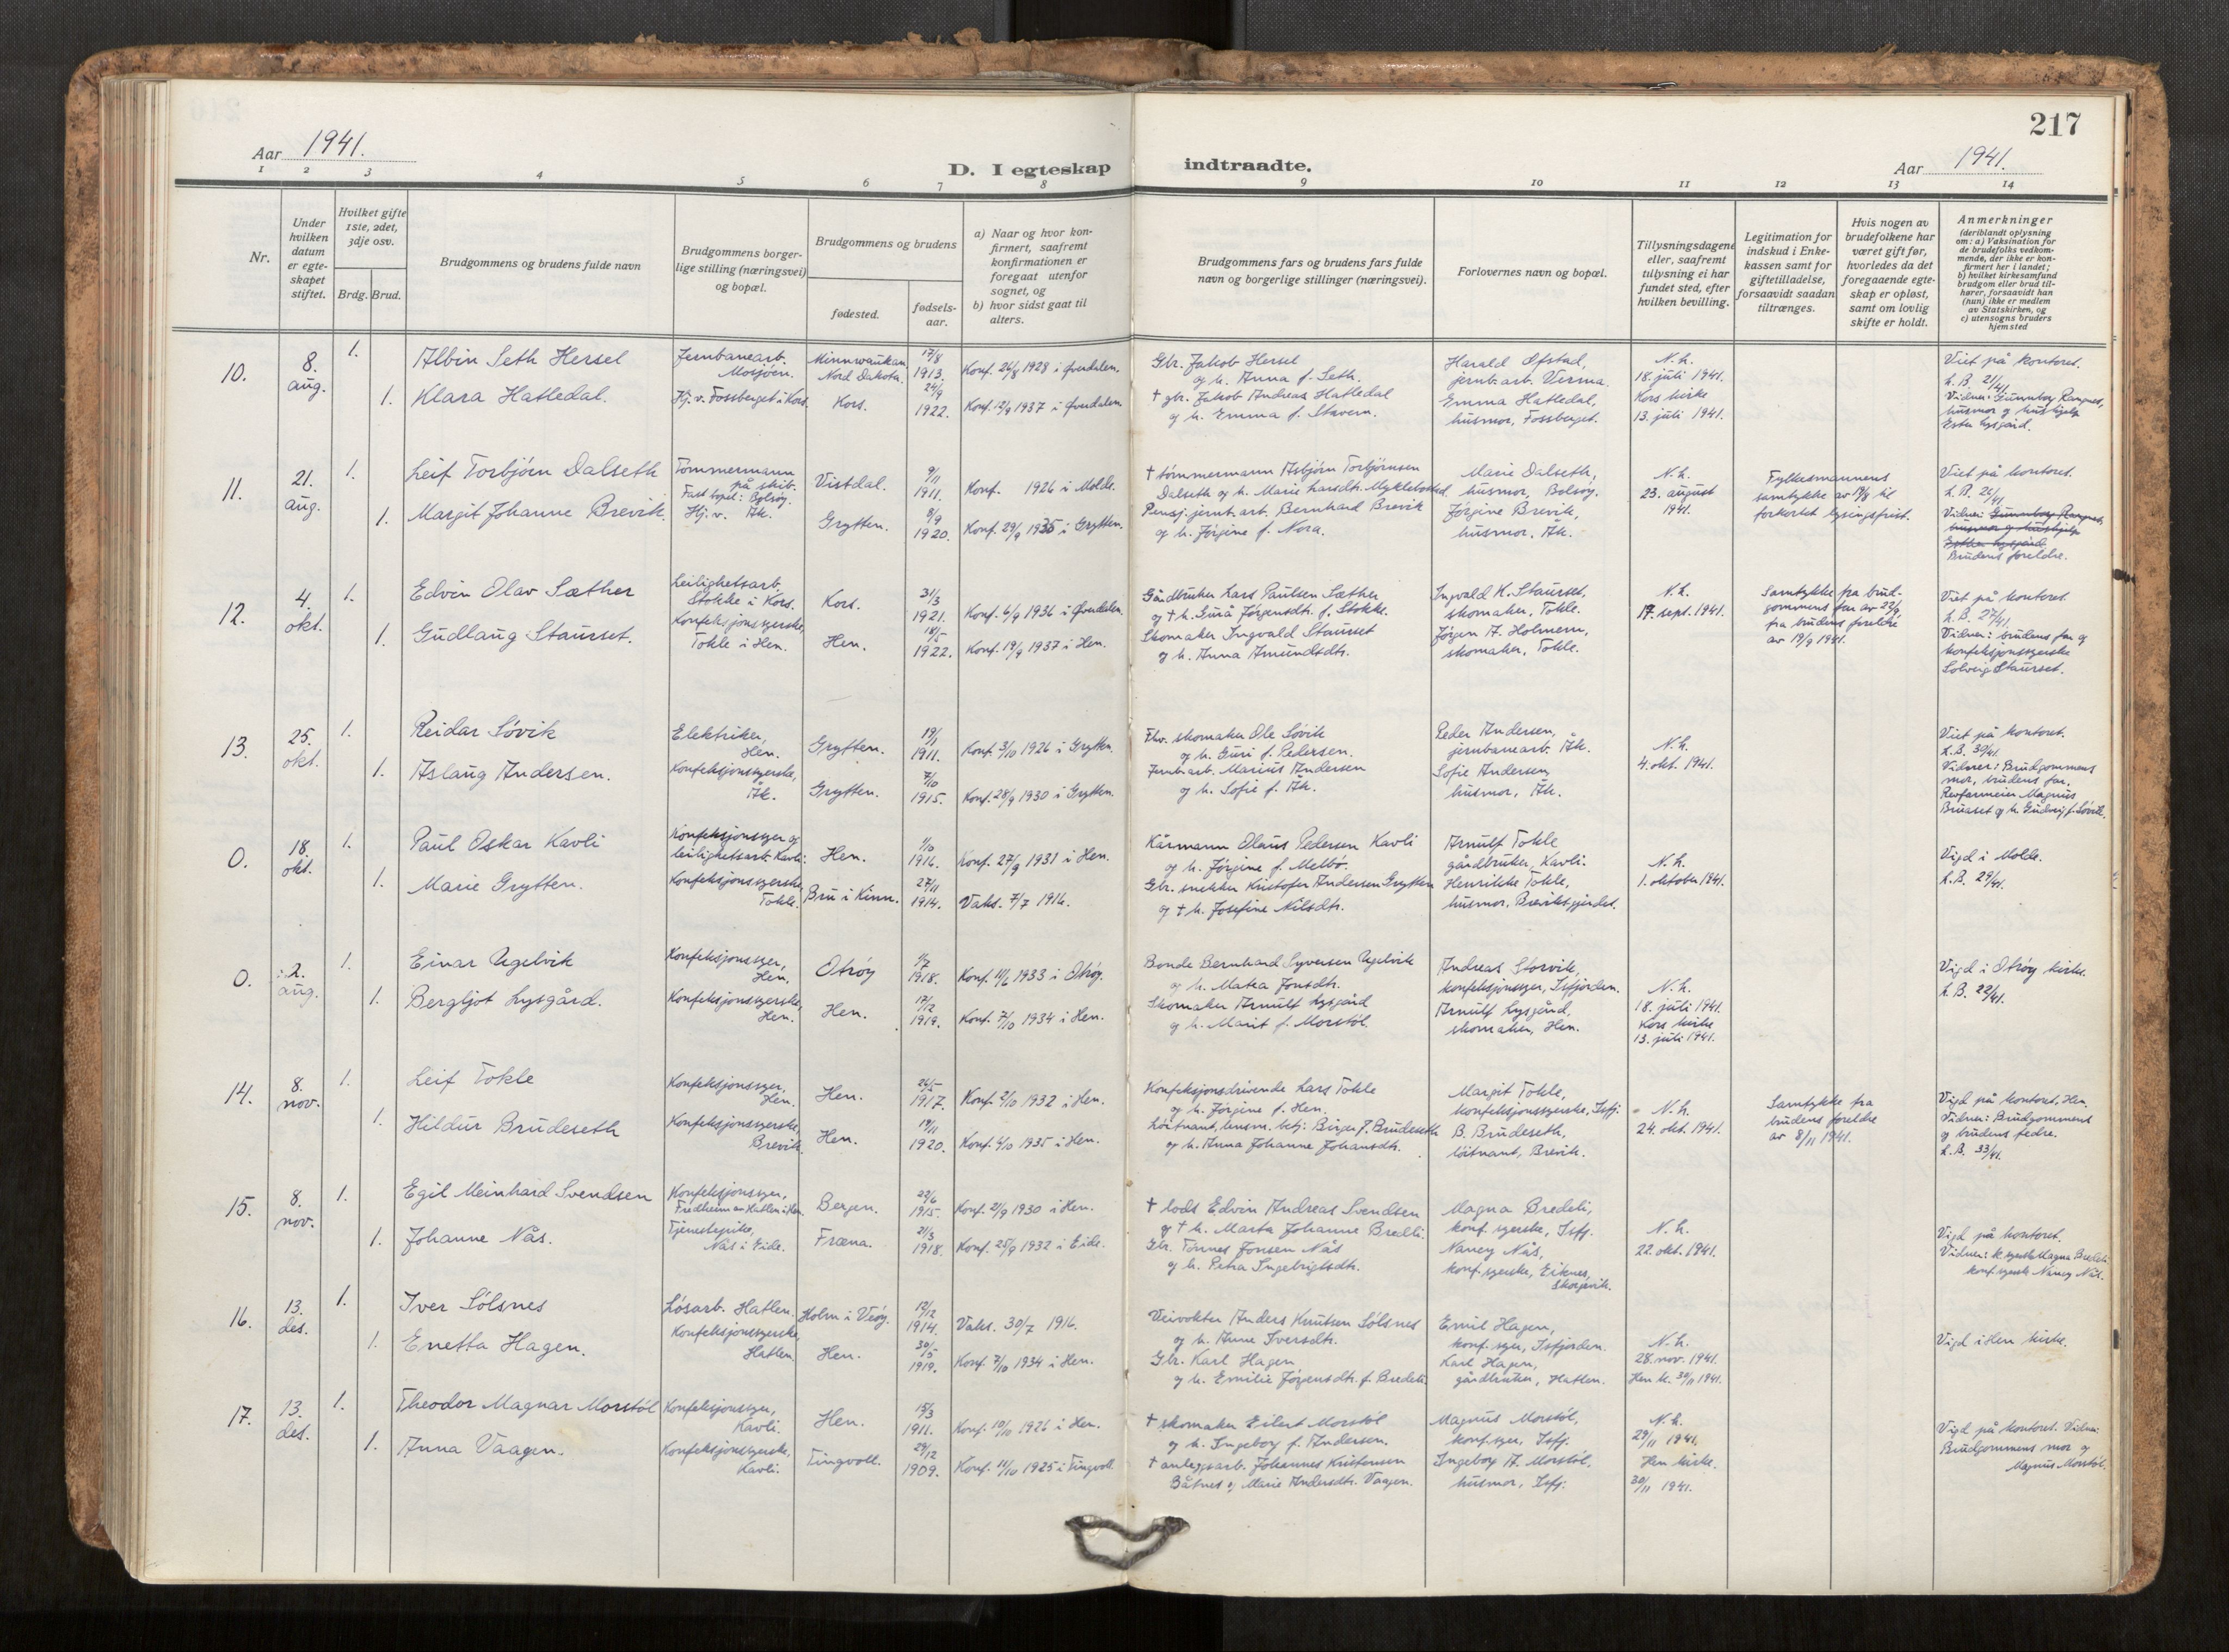 217
Aar 1941.
D. I egteskap indtraadte.
Aar 1941.
1 2 3 4 5 6 7 8 9 10 11 12 13 14
Nr.
Under hvilken datum er egteskapet stiftet.
Hvilket gifte 1ste, 2det, 3dje osv.
Brdg. Brud.
Brudgommens og brudens fulde navn
Brudgommens borgerlige stilling (næringsvei) og bopæl.
Brudgommens og brudens
fødested.
fødselsaar.
a) Naar og hvor konfirmert, saafremt konfirmationen er foregaat utenfor sognet, og
b) hvor sidst gaat til alters.
Brudgommens fars og brudens fars fulde navn og borgerlige stillinger (næringsvei).
Forlovernes navn og bopæl.
Tillysningsdagene eller, saafremt tillysning ei har fundet sted, efter hvilken bevilling.
Legitimation for indskud i Enkekassen samt for giftetilladelse, forsaavidt saadan tiltrænges.
Hvis nogen av brudefolkene har været gift før, hvorledes da det foregaaende egteskap er opløst, samt om lovlig skifte er holdt.
Anmerkninger (deriblandt oplysning om: a) Vaksination for de brudefolks vedkommende, der ikke er konfirmert her i landet; b) hvilket kirkesamfund brudgom eller brud tilhører, forsaavidt han (hun) ikke er medlem av Statskirken, og c) utensogns bruders hjemsted
10.
8. aug.
1.
Albin Seth Hersel
Jernbanearb. Mosjøen.
Minnwaukan Nord Dakota.
17/8 1913.
Konf. 26/8 1928 i Øverdalen.
Gbr. Jakob Hersel
og h. Anna f. Seth.
Harald Øfstad,
jernb.arb. Verma.
N.h.
18. juli 1941.
Viet på kontoret.
L.B. 21/41
1.
Klara Hatledal.
Hj. v. Fossberget i Kors.
Kors.
24/9 1922.
Konf. 12/9 1937 i Øverdalen.
† gbr. Jakob Andreas Hatledal
og h. Emma f. Stavem.
Emma Hatledal,
husmor, Fossberget.
Kors kirke
13. juli 1941.
Vidner: Gunnbor Rangnes,
husmor og hushjelp
Ester Lysgård.
11.
21. aug.
1.
Leif Torbjørn Dalseth
Tømmermann på skib.
Fast bopel: Bolsøy.
Vistdal.
9/11 1911.
Konf. 1926 i Molde.
† tømmermann Asbjørn Torbjørnsen
Dalseth og h. Marie Larsdtr. Myklebostad.
Marie Dalseth,
husmor, Bolsøy.
N.h.
23. august
1941.
Fylkesmannens
samtykke av 19/8 til
forkortet lysingsfrist.
Viet på kontoret.
L.B. 26/41
1.
Margit Johanne Brevik.
Hj. v. Åk.
Grytten.
8/9 1920.
Konf. 29/9 1935 i Grytten.
Pensj. jernb.arb. Bernhard Brevik
og h. Jørgine f. Nora.
Jørgine Brevik,
husmor, Åk.
Vidner: Gunnbor Rangnes,
husmor og hushjelp
Esther Lysgård.
Brudens foreldre.
12.
4. okt.
1.
Edvin Olav Sæther
Leilighetsarb.
Stokke i Kors.
Kors.
31/3 1921.
Konf. 6/9 1936 i Øverdalen.
Gårdbruker Lars Paulsen Sæther
og † h. Gurå Jørgensdtr. f. Stokke.
Ingvald K. Staurset,
skomaker, Tokle.
N.h.
17. sept. 1941.
Samtykke fra brud-
gommens far av 22/9,
fra brudens foreldre
av 19/9 1941.
Viet på kontoret.
L.B. 27/41.
1.
Gudlaug Staurset.
Konfeksjonssyerske,
Tokle i Hen.
Hen.
18/5 1922.
Konf. 19/9 1937 i Hen.
Skomaker Ingvald Staurset
og h. Anna Amundsdtr.
Jørgen A. Holmem,
skomaker, Tokle.
Vidner: brudens far og
konfeksjonssyerske
Solveig Staurset.
13.
25. okt.
1.
Reidar Søvik
Elektriker,
Hen.
Grytten.
19/1 1911.
Konf. 3/10 1926 i Grytten.
Fhv. skomaker Ole Søvik
og h. Guri f. Pedersen.
Peder Andersen,
jernbanearb. Åk.
N.h.
4. okt. 1941.
Viet på kontoret.
L.B. 30/41.
1.
Aslaug Andersen.
Konfeksjonssyerske,
Åk.
Grytten.
7/10 1915.
Konf. 28/9 1930 i Grytten.
Jernb.arb. Marius Andersen
og h. Sofie f. Åk.
Sofie Andersen,
husmor, Åk.
Vidner: Brudgommens
mor, brudens far.
Revfarmeier Magnus
Bruaset og h. Gudvei f. Søvik.
0.
18. okt.
1.
Paul Oskar Kavli
Konfeksjonssyer og
leilighetsarb. Kavli.
Hen.
1/10 1916.
Konf. 27/9 1931 i Hen.
Kårmann Olaus Pedersen Kavli
og h. Jørgine f. Melbø.
Arnulf Tokle
gårdbruker, Kavli.
N.h.
1. oktober 1941.
Vigd i Molde.
L.B. 29/41.
1.
Marie Grytten.
Konfeksjonssyerske,
Tokle.
Bru i Kinn.
27/11 1914.
Vaks. 7/7 1916.
Gbr. snekker Kristofer Andersen Grytten
og † h. Josefine Nilsdtr.
Henrikke Tokle,
husmor, Breviksgjerdet.
0.
2. aug.
1.
Einar Ugelvik
Konfeksjonssyer,
Hen.
Otrøy
1/7 1918.
Konf. 11/6 1933 i Otrøy.
Bonde Bernhard Syversen Ugelvik
og h. Matea Jonsdtr.
Andreas Storvik,
konfeksjonssyer, Isfjorden.
N.h.
18. juli 1941.
Vigd i Otrøy kirke.
L.B. 22/41.
1.
Bergljot Lysgård.
Konfeksjonssyerske,
Hen.
Hen.
17/12 1919.
Konf. 7/10 1934 i Hen.
Skomaker Arnulf Lysgård
og h. Marit f. Morstøl.
Arnulf Lysgård,
skomaker, Hen.
Kors kirke
13. juli 1941.
14.
8. nov.
1.
Leif Tokle
Konfeksjonssyer,
Hen.
Hen.
26/5 1917.
Konf. 2/10 1932 i Hen.
Konfeksjonsdrivende Lars Tokle
og h. Jørgine f. Hen.
Margit Tokle,
konfeksjonssyerske, Isfj.
N.h.
24. okt. 1941.
Samtykke fra
brudens foreldre
av 8/11 1941.
Vigd på kontoret, Hen.
Vidner: Brudgommens
og brudens fedre.
L.B. 33/41.
1.
Hildur Brudeseth
Konfeksjonssyerske,
Brevik.
Hen.
19/11 1920.
Konf. 6/10 1935 i Hen.
Løitnant, lensm. betj. Birger P. Brudeseth
og h. Anna Johanne Johansdtr.
B. Brudeseth,
løitnant, Brevik.
15.
8. nov.
1.
Egil Meinhard Svendsen
Konfeksjonssyer,
Fridheim av Hatlen i Hen.
Bergen.
22/6 1915.
Konf. 21/9 1930 i Hen.
† lods Edvin Andreas Svendsen
og † h. Marta Johanne Bredeli.
Magna Bredeli,
konf. syerske, Isfj.
N.h.
22. okt. 1941.
Vigd på kontoret.
Vidner: k. syerske Magna Bredeli
konf. syersk Nancy Nås.
1.
Johanne Nås.
Tjenestepike,
Nås i Eide.
Fræna.
21/3 1918.
Konf. 25/9 1932 i Eide.
Gbr. Tønnes Jonsen Nås
og h. Petra Ingebrigtsdtr.
Nancy Nås,
konf. syerske, Eiknes,
Skorgevik.
16.
13. des.
1.
Iver Sølsnes
Løsarb. Hatlen.
Holm i Veøy.
12/12 1914.
Vaks. 30/7 1916.
Veivokter Anders Knutsen Sølsnes
og h. Anne Iversdtr.
Emil Hagen,
konf. syer, Isfjorden.
N.h.
28. nov. 1941.
Vigd i Hen kirke.
1.
Enetta Hagen.
Konfeksjonssyerske,
Hatlen.
Hen.
30/5 1919.
Konf. 7/10 1934 i Hen.
Gbr. Karl Hagen
og h. Emilie Jørgensdtr. f. Bredeli
Karl Hagen,
gårdbruker, Hatlen.
Hen k. 30/11 1941.
17.
13. des.
1.
Theodor Magnar Morstøl
Konfeksjonssyer,
Kavli.
Hen.
15/3 1911.
Konf. 10/10 1926 i Hen.
† skomaker Eilert Morstøl
og h. Ingeborg f. Andersen.
Magnus Morstøl,
konf. syer, Isfj.
N.h.
29/11 1941.
Vigd på kontoret. Vidner:
Brudgommens mor og
Magnus Morstøl.
1.
Anna Vaagen.
Konfeksjonssyerske,
Kavli.
Tingvoll.
29/12 1909.
Konf. 11/10 1925 i Tingvoll.
† anleggsarb. Johannes Kristensen
Båtnes og Marie Andersdtr. Vaagen.
Ingeborg A. Morstøl,
husmor, Isfj.
Hen kirke.
30/11 1941.